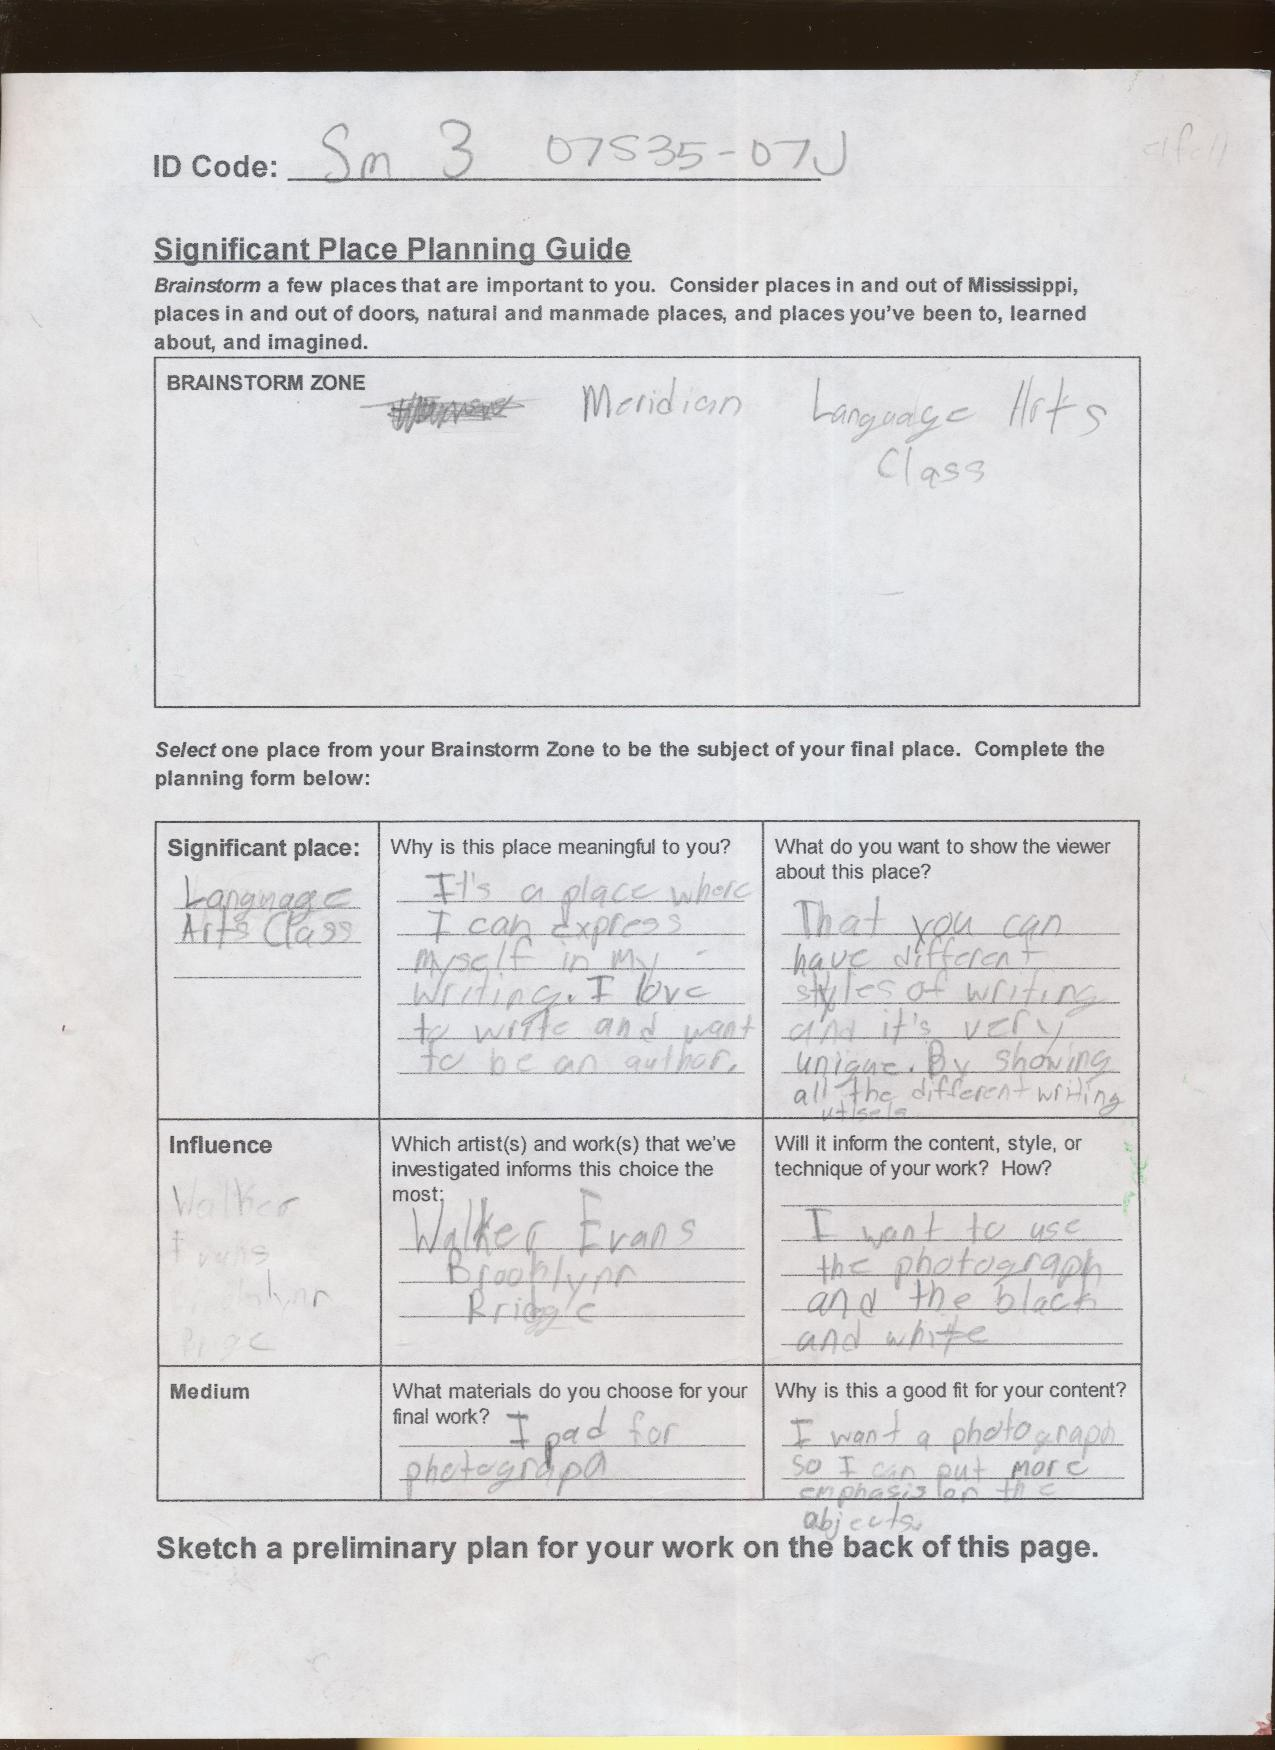 ID Code: Sm 3 07S35-07J
Significant Place Planning Guide
Brainstorm a few places that are important to you. Consider places in and out of Mississippi,
places in and out of doors, natural and manmade places, and places you've been to, learned
about, and imagined.
BRAINSTORM ZONE
Meridian Language Arts
Class
Select one place from your Brainstorm Zone to be the subject of your final place. Complete the
planning form below:
Significant place:
Language
Arts Class
Why is this place meaningful to you?
It's a place where
I can express
myself in my
writing. I love
to write and want
to be an author.
What do you want to show the viewer
about this place?
That you can
have different
styles of writing
and it's very
unique. By showing
all the different writing
utlsels
Influence
Walker
Evans
Brooklynr
Brge
Which artist(s) and work(s) that we've
investigated informs this choice the
most:
Walker Evans
Brooklynr
Bridge
Will it inform the content, style, or
technique of your work? How?
I want to use
the photograph
and the black
and white
Medium
What materials do you choose for your
final work?
I pad for
photograph
Why is this a good fit for your content?
I want a photograph
so I can put more
emphasis on the
objects.
Sketch a preliminary plan for your work on the back of this page.